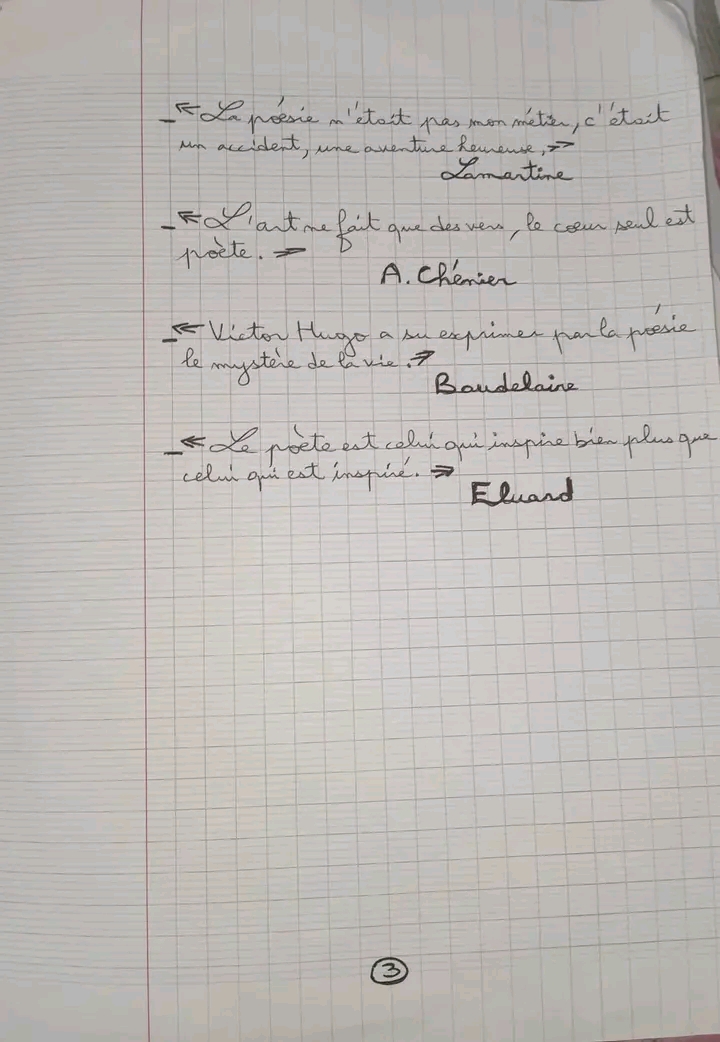 _ « La poésie n'était pas mon métier, c'était
un accident, une aventure heureuse, »
Lamartine
_ « L'art ne fait que des vers, le cœur seul est
poète. »
A. Chénier
_ « Victor Hugo a su exprimer par la poésie
le mystère de la vie. »
Baudelaire
_ « Le poète est celui qui inspire bien plus que
celui qui est inspiré. »
Eluard
3